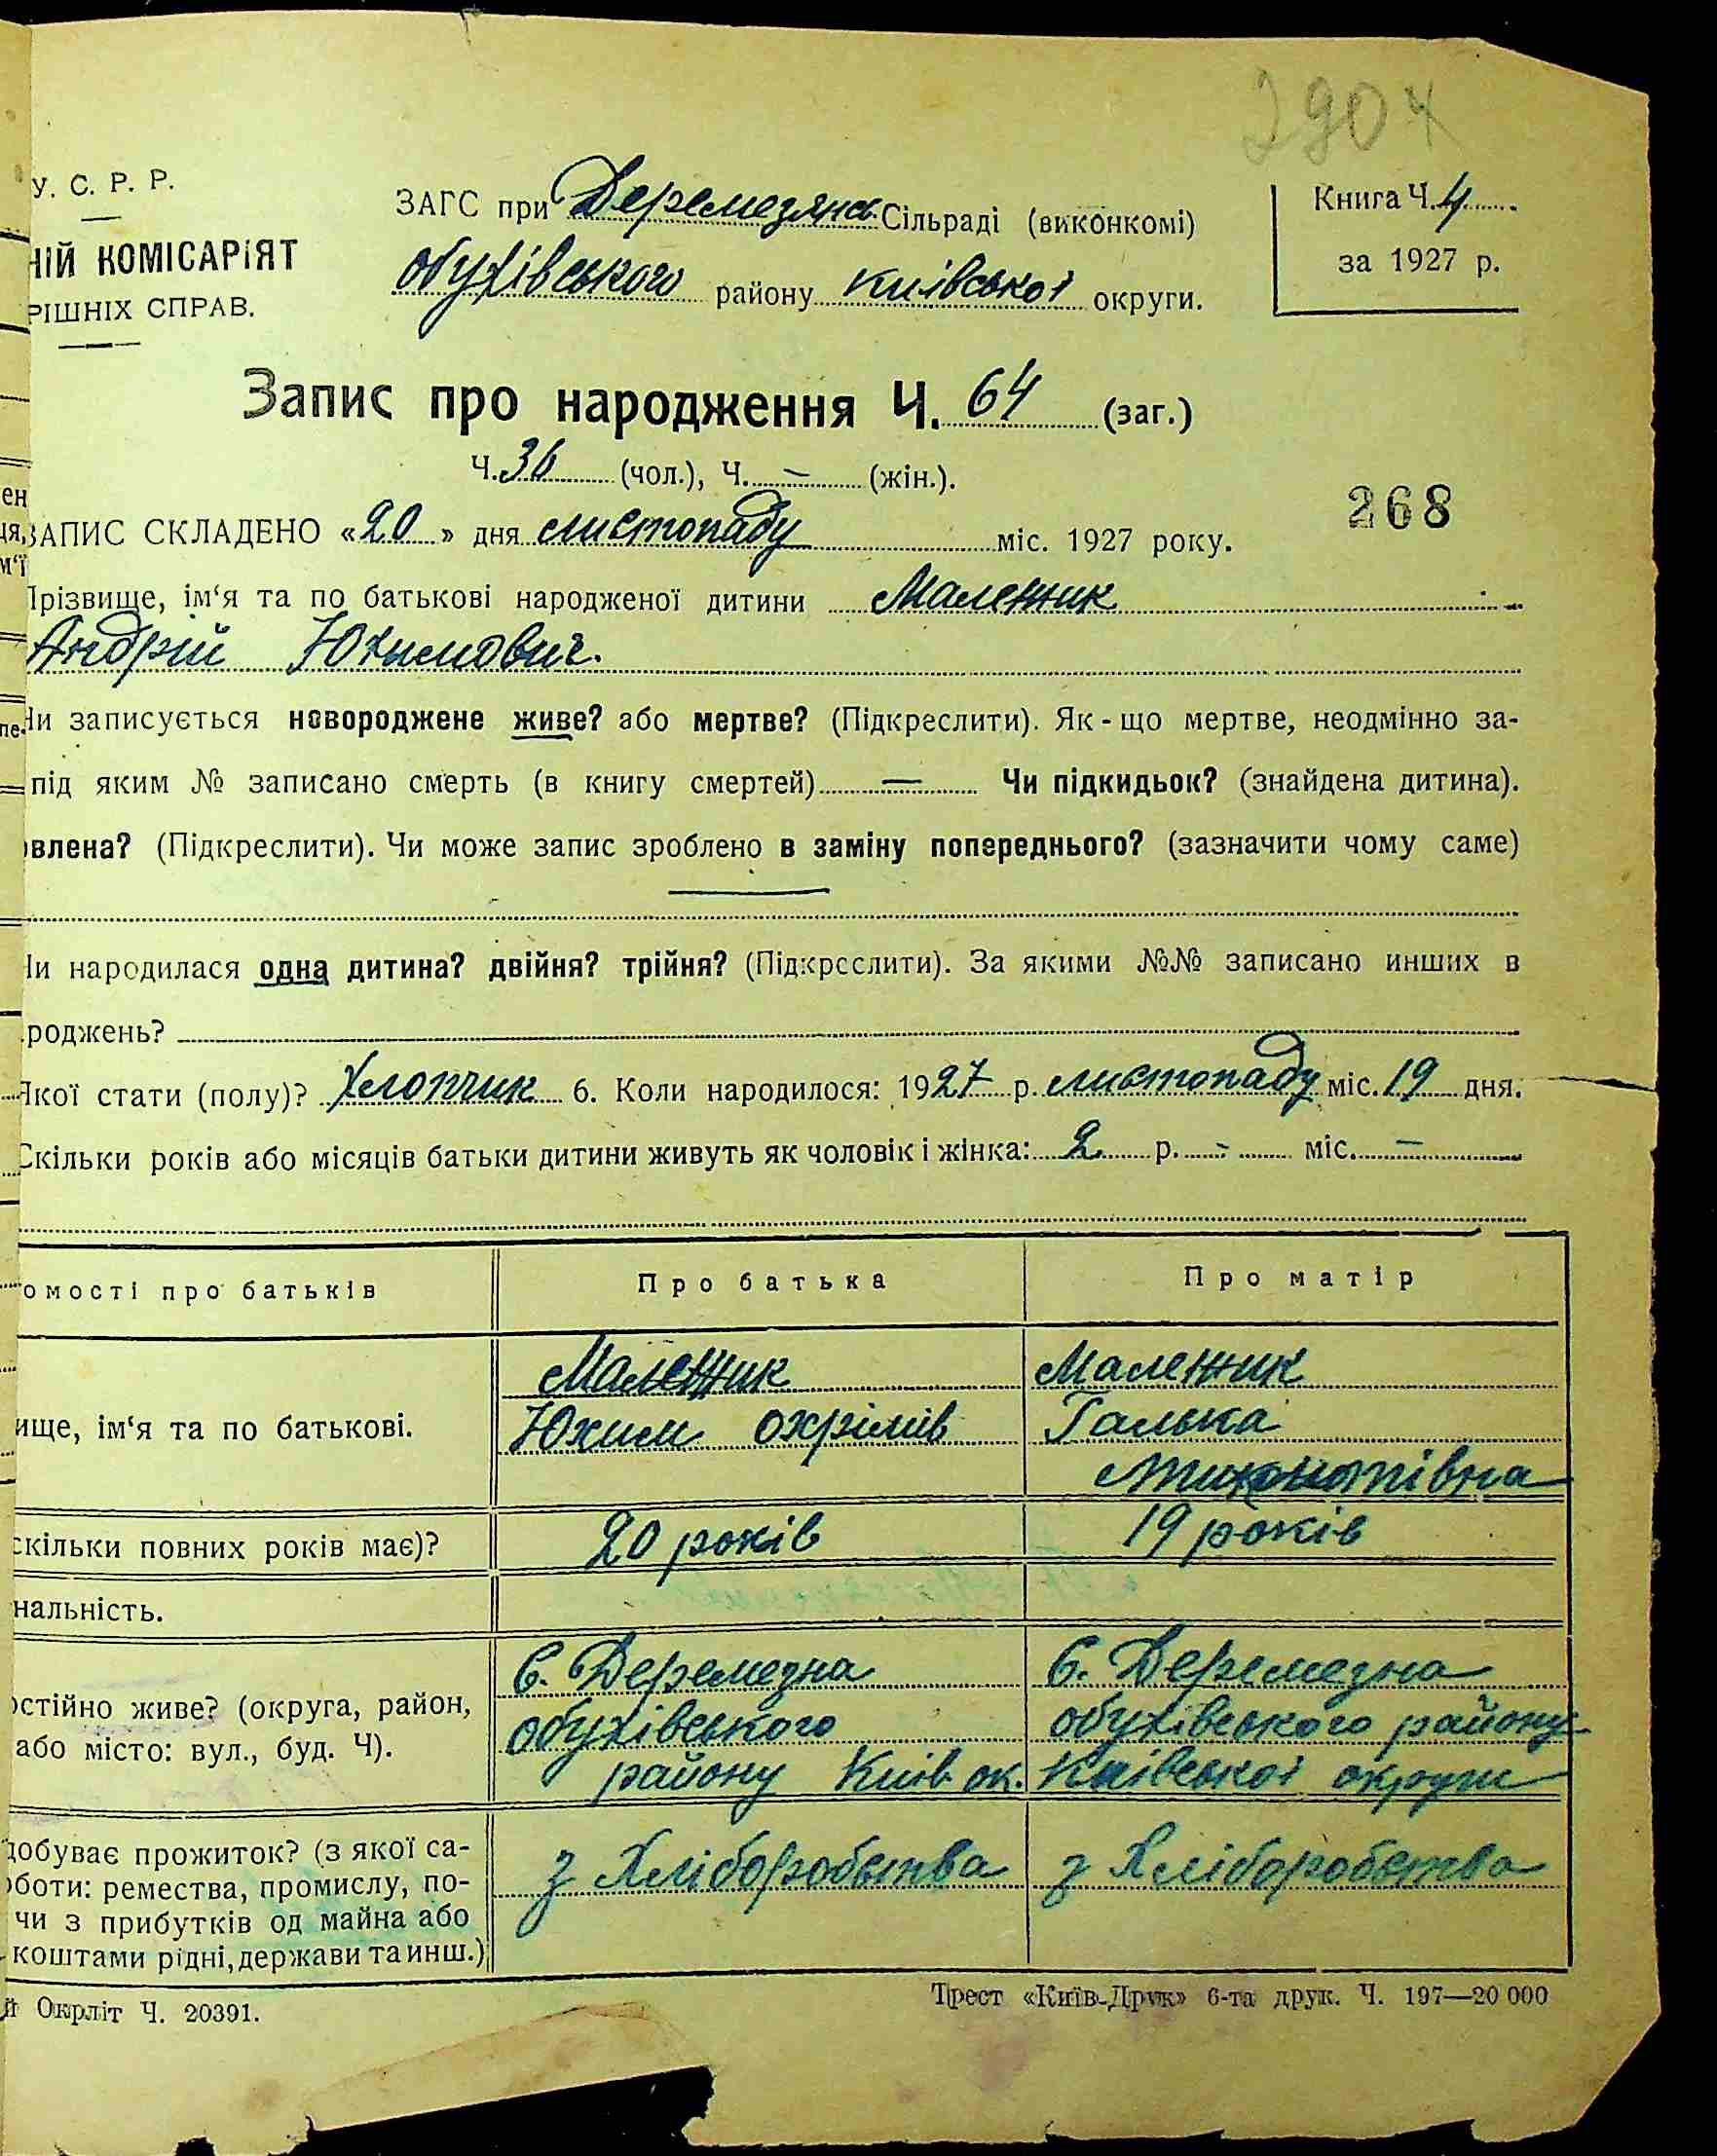 2904
У. С. Р. Р.
ЗАГС при Деремезянс. Сільраді (виконкомі)
Книга Ч. 4
НІЙ КОМІСАРІЯТ
обухівського району Київської округи.
за 1927 р.
РІШНІХ СПРАВ.
Запис про народження Ч. 64 (заг.)
Ч. 36 (чол.), Ч. — (жін.).
268
ЗАПИС СКЛАДЕНО «20» дня листопаду міс. 1927 року.
Прізвище, ім'я та по батькові народженої дитини Маленжик
Андрій Юхимович.
Чи записується новороджене живе? або мертве? (Підкреслити). Як-що мертве, неодмінно за-
під яким № записано смерть (в книгу смертей) — Чи підкидьок? (знайдена дитина).
влена? (Підкреслити). Чи може запис зроблено в заміну попереднього? (зазначити чому саме)
Чи народилася одна дитина? двійня? трійня? (Підкреслити). За якими №№ записано инших в
роджень?
Якої стати (полу)? Хлопчик 6. Коли народилося: 1927 р. листопаду міс. 19 дня.
Скільки років або місяців батьки дитини живуть як чоловік і жінка: 2 р. — міс. —
омості про батьків
Про батька
Про матір
Маленжик
Маленжик
ище, ім'я та по батькові.
Юхим охрімів
Галька
скільки повних років має)?
20 років
19 років
нальність.
С. Деремезна
С. Деремезна
остійно живе? (округа, район,
обухівського
обухівського району
або місто: вул., буд. Ч).
району Київ. ок.
Київської округи
добуває прожиток? (з якої са-
з Хліборобства
з Хліборобства
оботи: ремества, промислу, по-
чи з прибутків од майна або
коштами рідні, держави та инш.)
й Окрліт Ч. 20391.
Трест «Київ-Друк» 6-та друк. Ч. 197—20 000